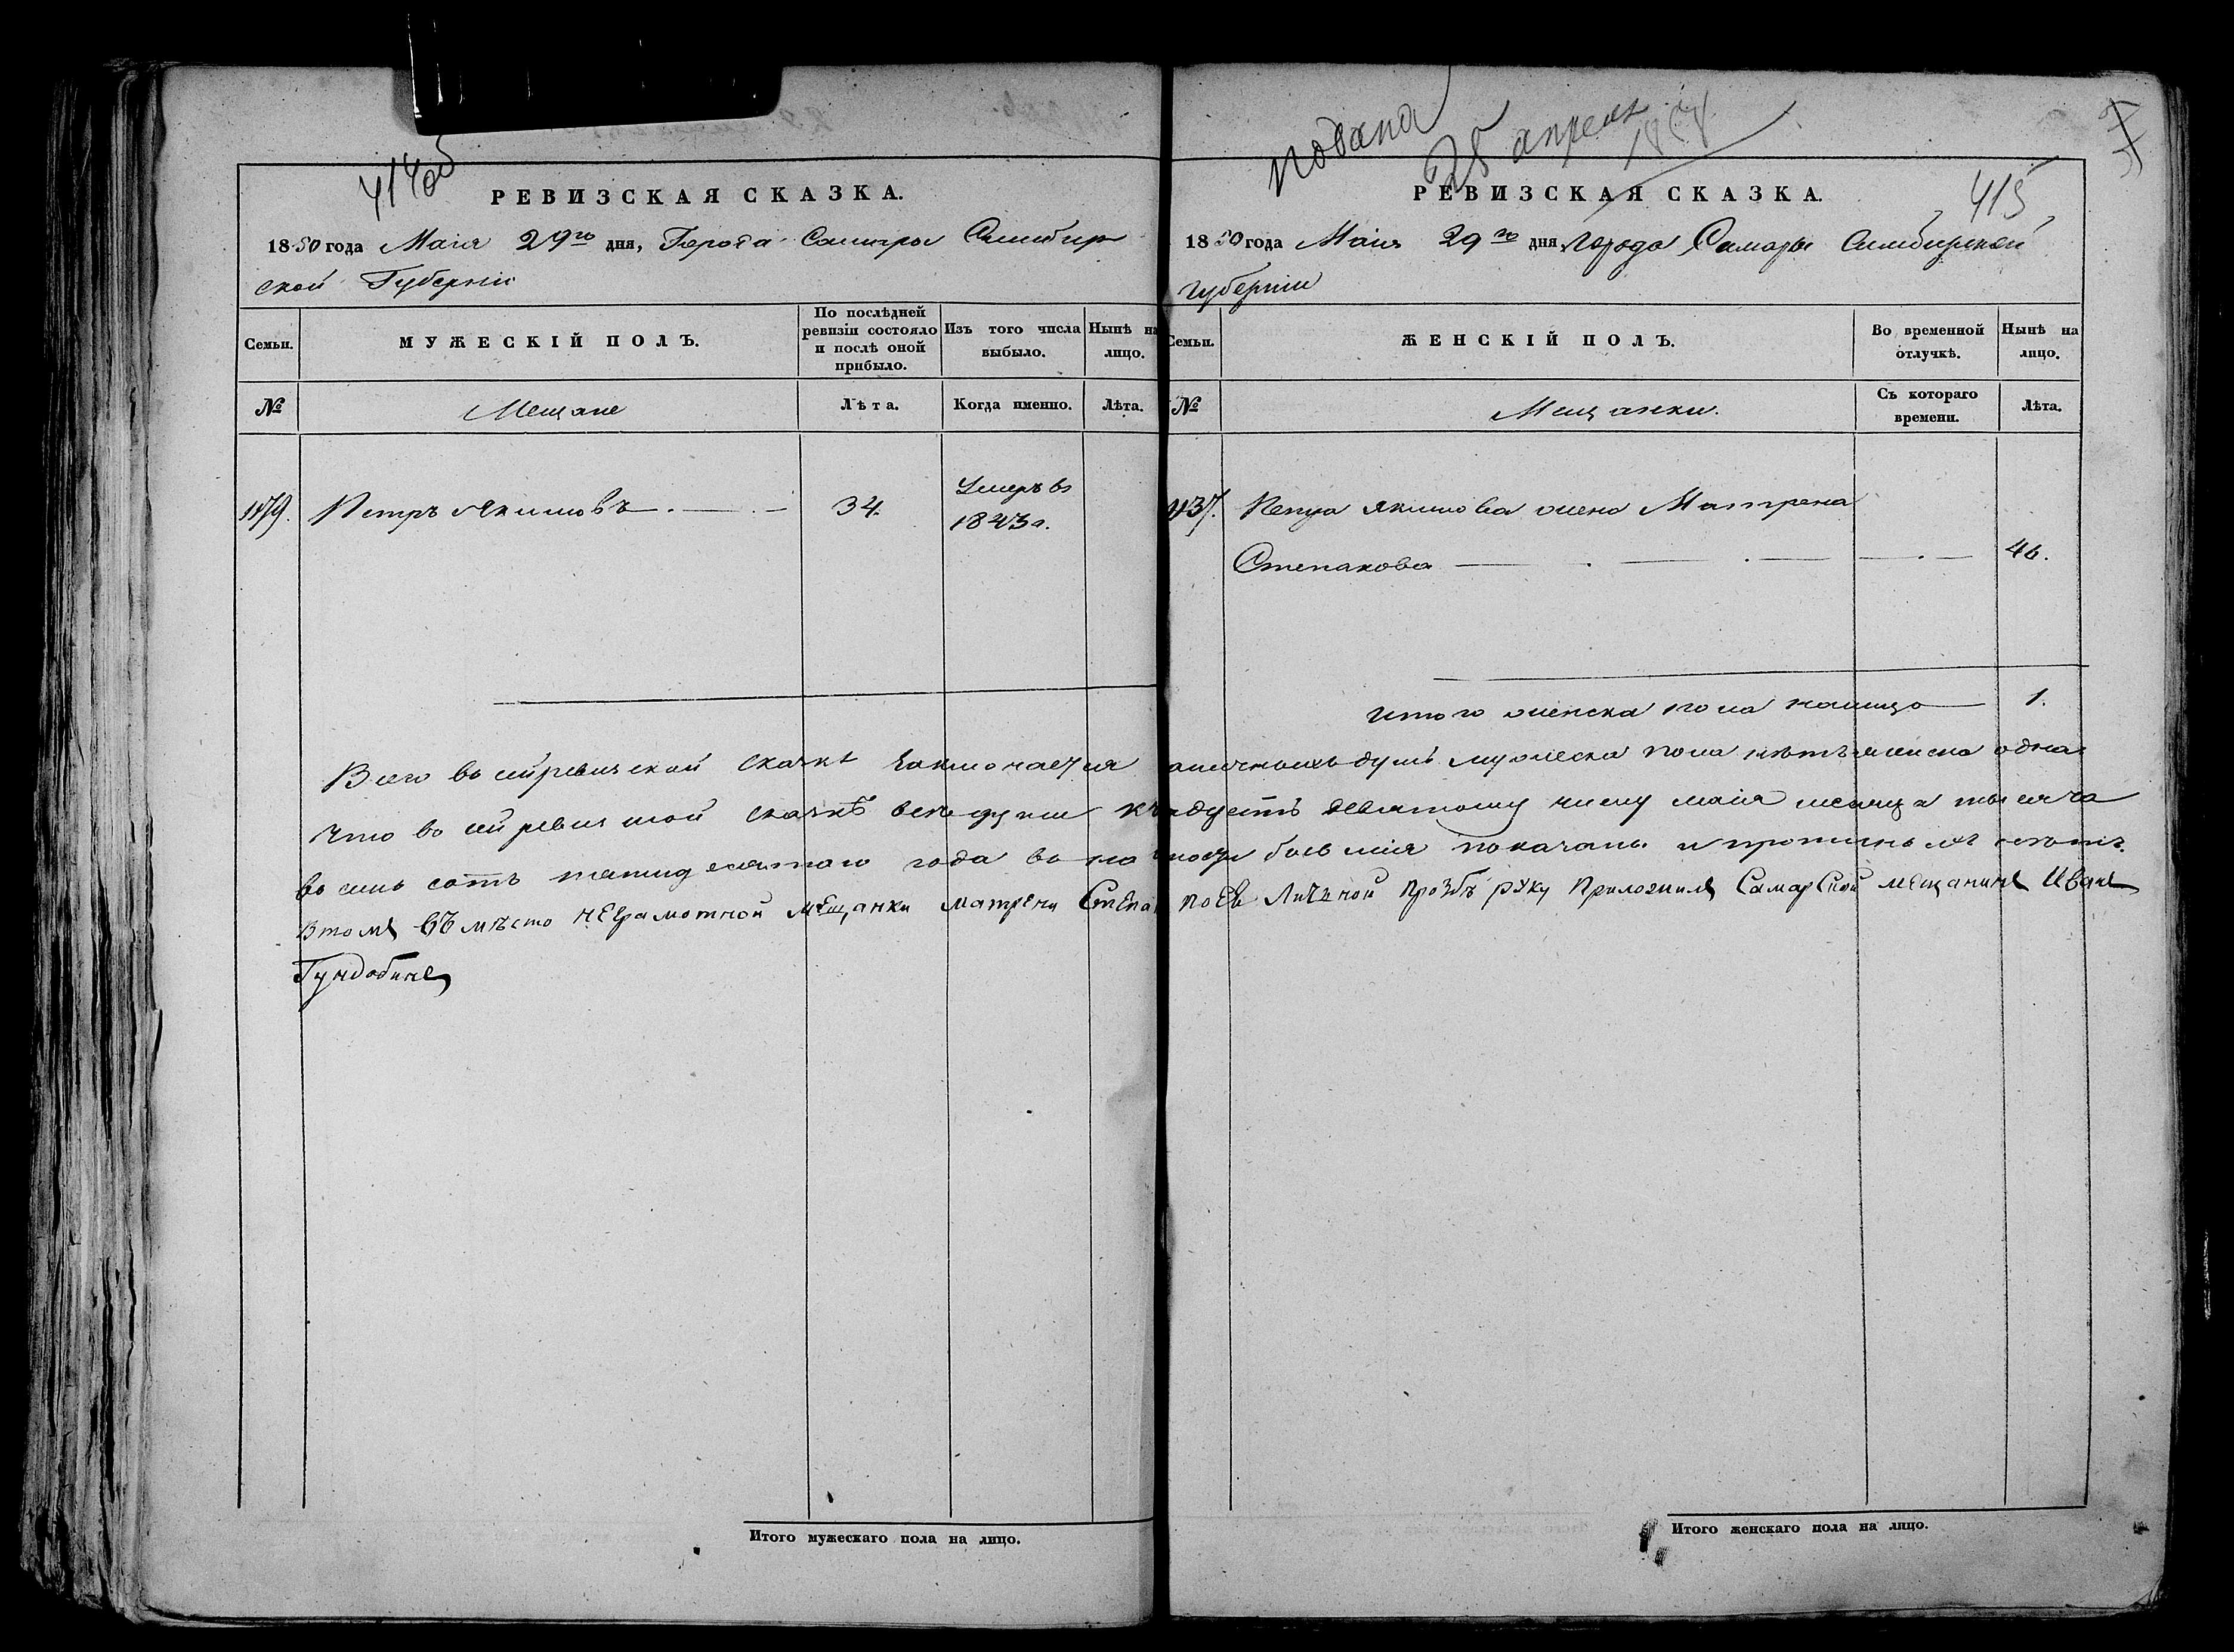 414об
РЕВИЗСКАЯ СКАЗКА.
1850 года Маія 29го дня, Города Самары Симбир
ской Губерніи
Семьи.
МУЖЕСКІЙ ПОЛЪ.
По послѣдней ревизіи состояло и послѣ оной прибыло.
Изъ того числа выбыло.
Нынѣ на лицо.
№
Мещане
Лѣта.
Когда именно.
Лѣта.
Петръ Якимовъ
34.
Умеръ въ
1843 г.
Подана
28 апреля
415
РЕВИЗСКАЯ СКАЗКА.
1850 года Маія 29го дня, Города Самары Симбирской
Губерніи
Семьи.
ЖЕНСКІЙ ПОЛЪ.
Во временной отлучкѣ.
Нынѣ на лицо.
№
Мещанки.
Съ котораго времени.
Лѣта.
437.
Петра Якимова жена Матрена
Степанова
46.
Итого женска пола налицо 1.
Всего в сей ревизской сказке заключается наличныхъ душъ мужеска пола нѣтъ женска одна
Что в сей ревизской сказкѣ все души къ девятому числу маія месяца тысяча
восемь сотъ пятидесятаго года в показаны и прописныхъ нѣтъ.
Втомъ въмѣсто неграмотной мещанки матрены Степа поея Личной прозбѣ руку Приложилъ Самарской мещанинъ Иванъ
Гундобинъ
Итого мужескаго пола на лицо.
Итого женскаго пола на лицо.